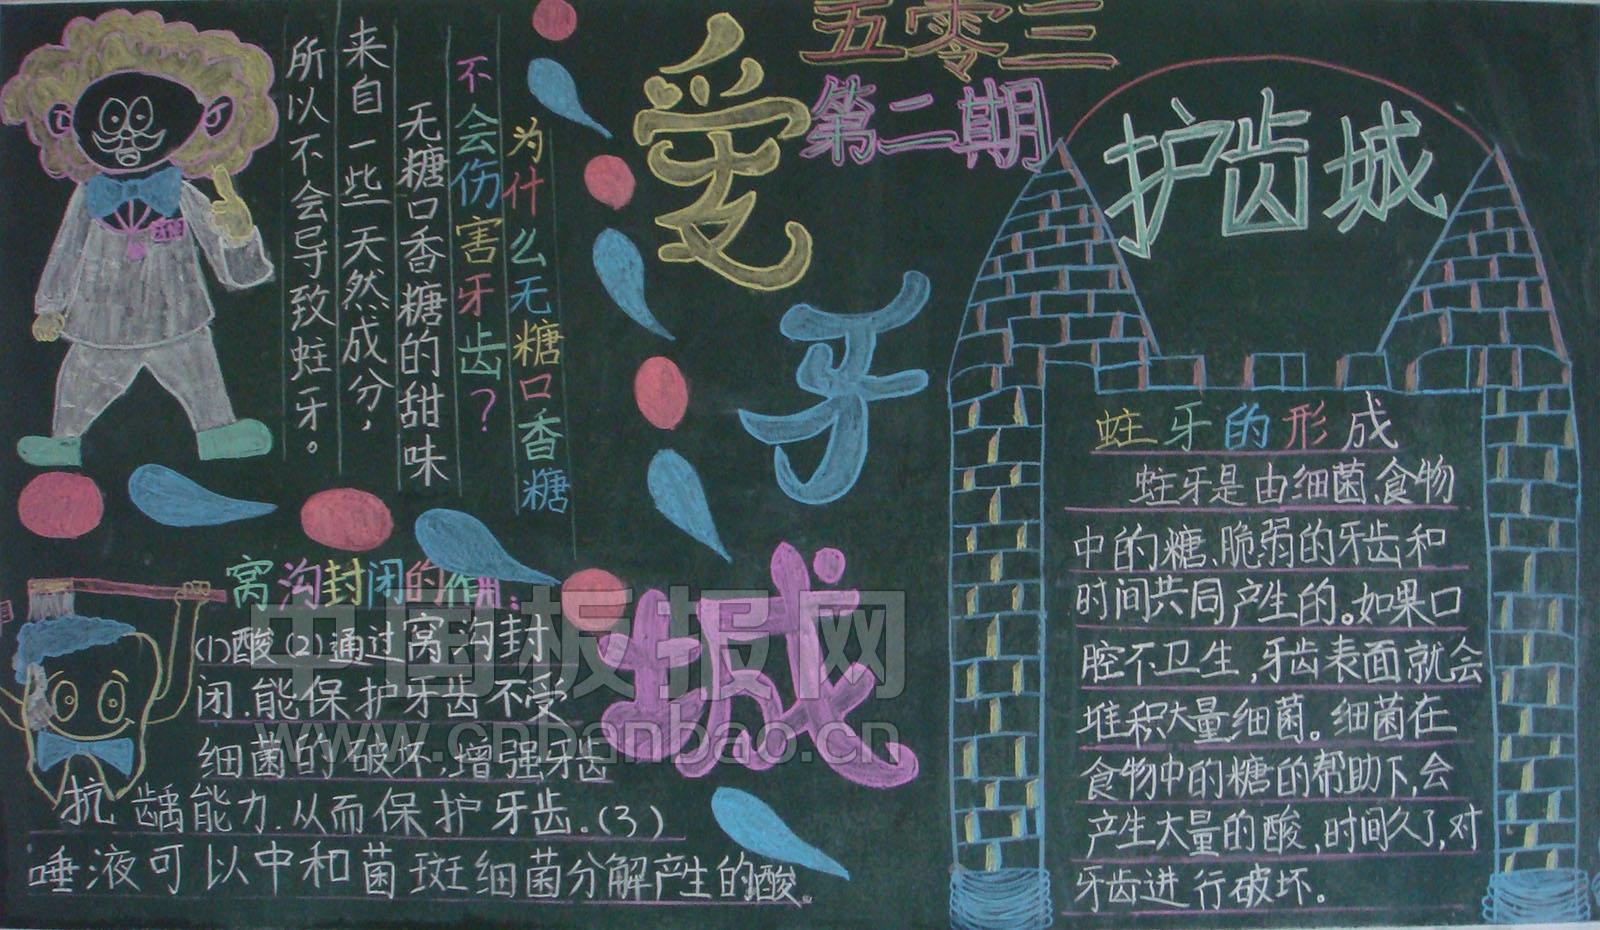 五零三
第二期
爱牙城
护齿城
为什么无糖口香糖
不会伤害牙齿？
无糖口香糖的甜味
来自一些天然成分，
所以不会导致蛀牙。
窝沟封闭的作用：
(1)酸(2)通过窝沟封
闭、能保护牙齿不受
细菌的破坏，增强牙齿
抗龋能力、从而保护牙齿。(3)
唾液可以中和菌斑细菌分解产生的酸。
蛀牙的形成
蛀牙是由细菌、食物
中的糖、脆弱的牙齿和
时间共同产生的。如果口
腔不卫生，牙齿表面就会
堆积大量细菌。细菌在
食物中的糖的帮助下，会
产生大量的酸，时间久了，对
牙齿进行破坏。
中国板报网
www.cnbanbao.cn